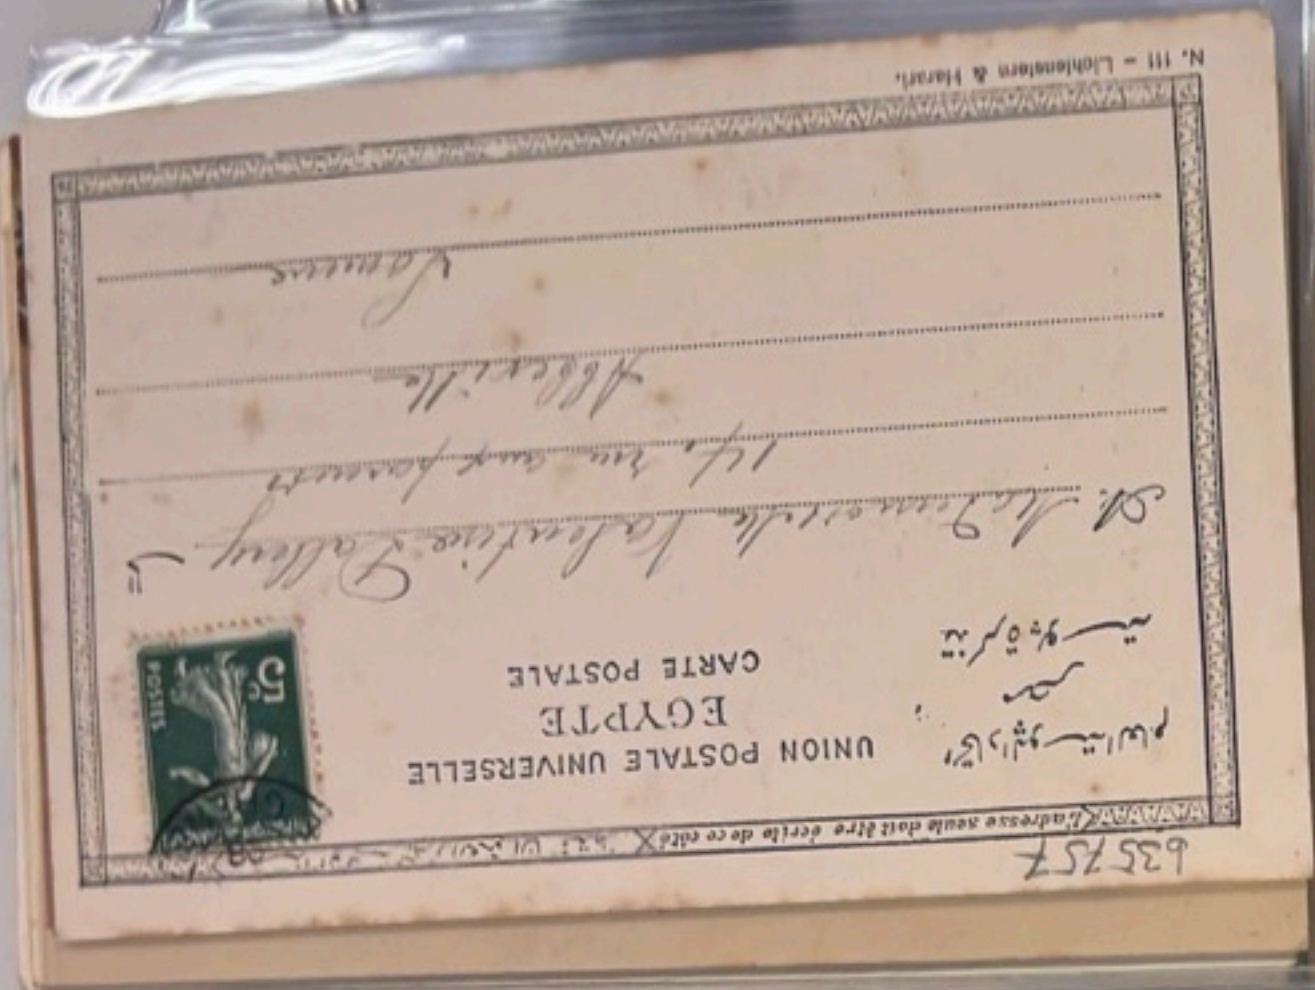 635757
L'adresse seule doit être écrite de ce côté
UNION POSTALE UNIVERSELLE
EGYPTE
CARTE POSTALE
اتحاد البوستة العام
مصر
تذكرة بوستة
5c
POSTES
Mademoiselle Valentine
14, rue aux pareurs
Abbeville
Somme
N. 111 - Lichtenstern & Harari.